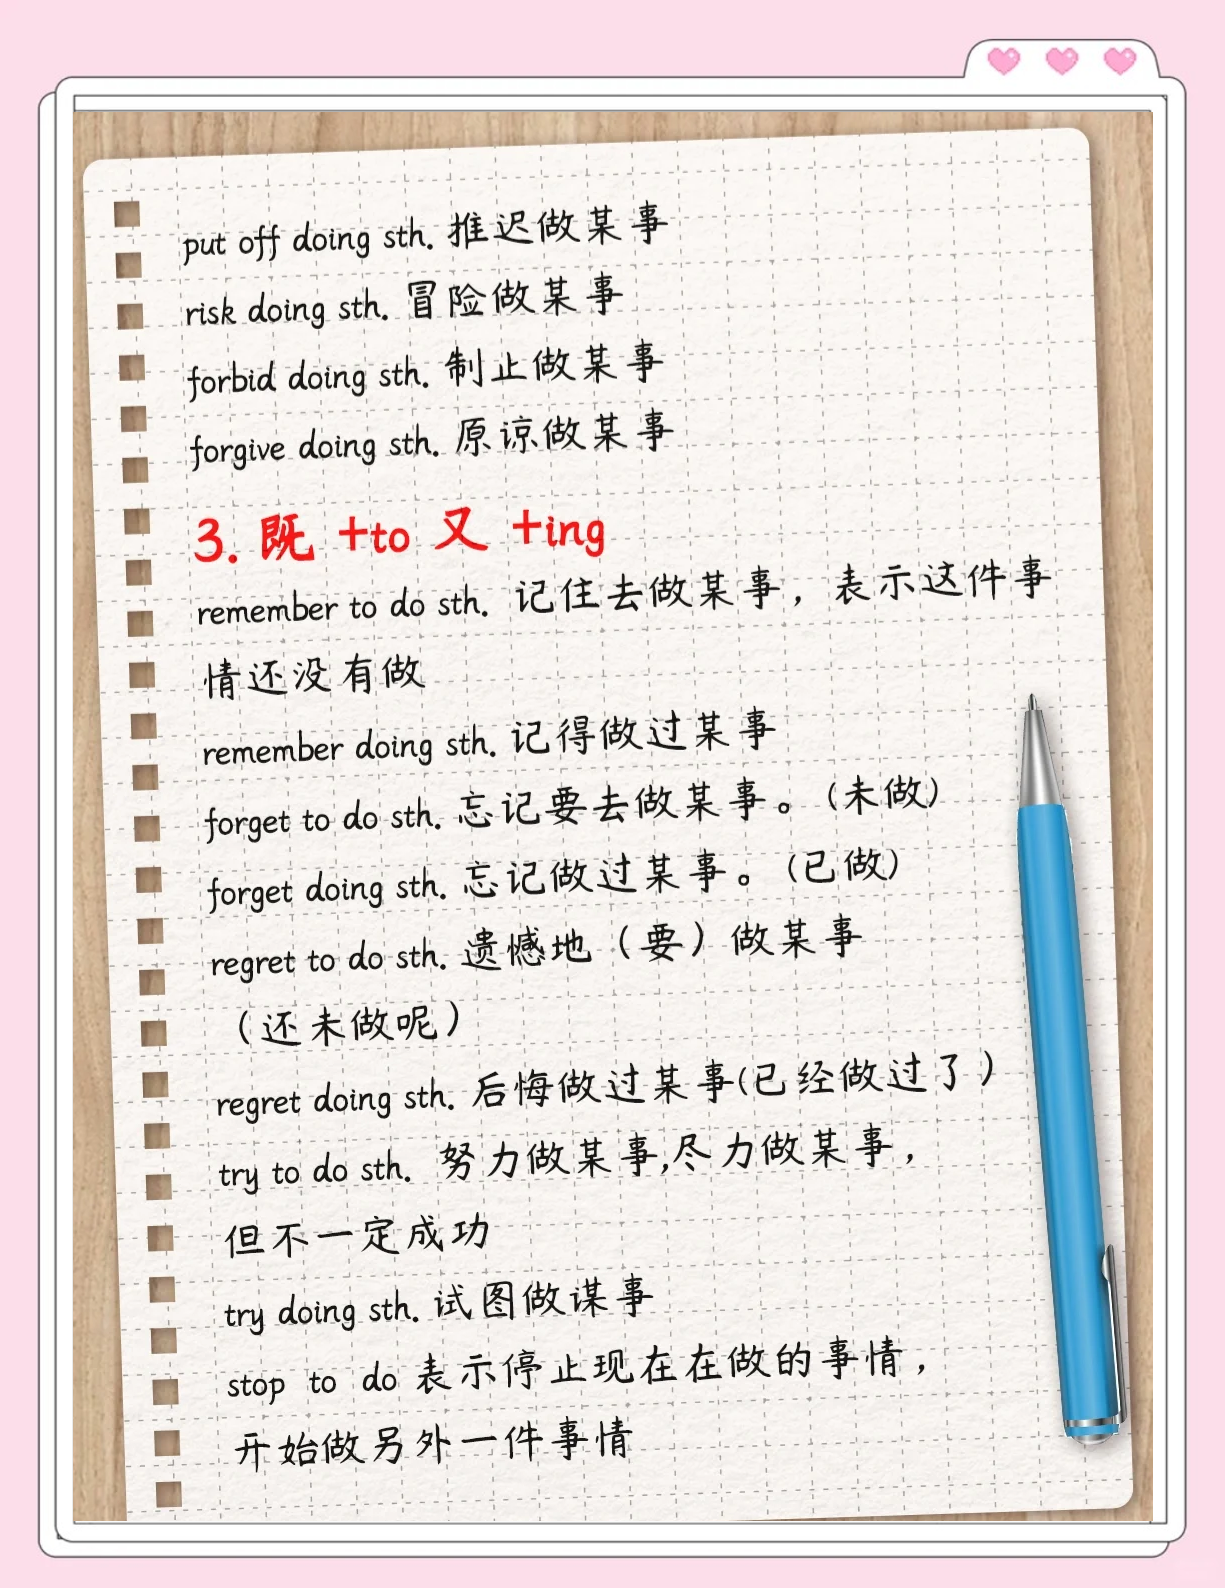 put off doing sth. 推迟做某事
risk doing sth. 冒险做某事
forbid doing sth. 制止做某事
forgive doing sth. 原谅做某事
3. 既 +to 又 +ing
remember to do sth. 记住去做某事，表示这件事
情还没有做
remember doing sth. 记得做过某事
forget to do sth. 忘记要去做某事。(未做)
forget doing sth. 忘记做过某事。(已做)
regret to do sth. 遗憾地（要）做某事
（还未做呢）
regret doing sth. 后悔做过某事(已经做过了）
try to do sth. 努力做某事,尽力做某事，
但不一定成功
try doing sth. 试图做谋事
stop to do 表示停止现在在做的事情，
开始做另外一件事情